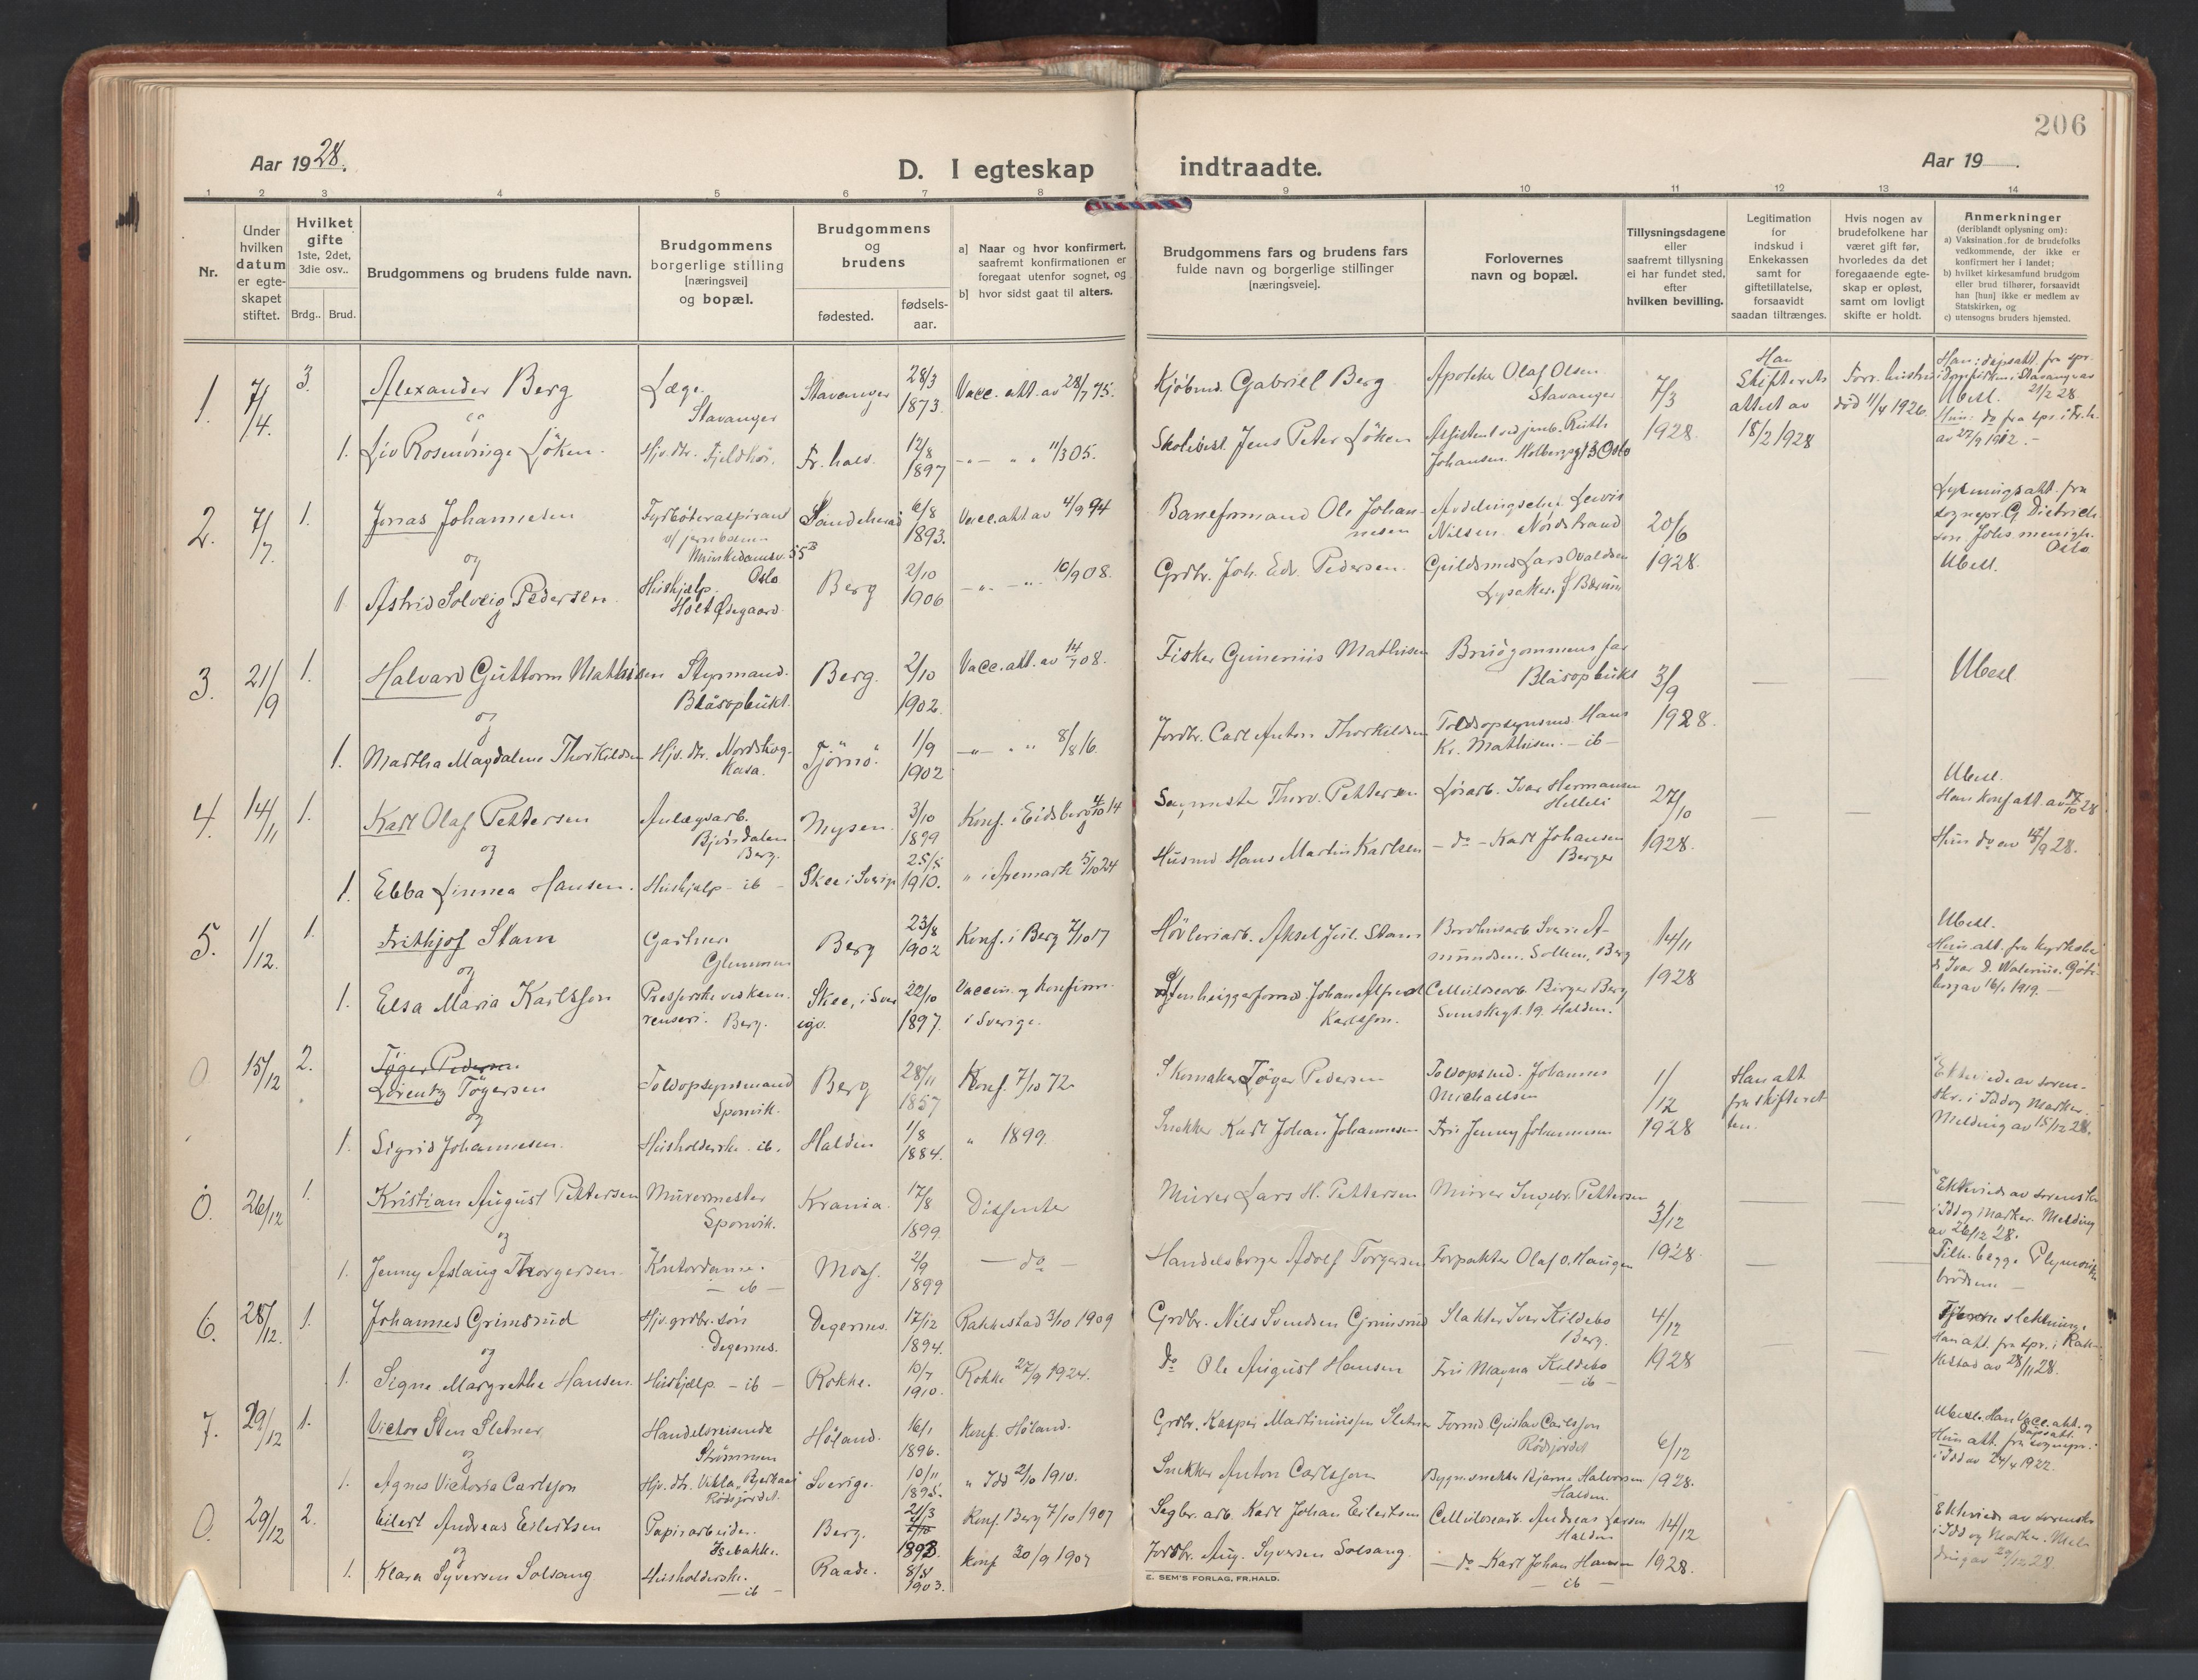 206
Aar 1928.
D. I egteskap indtraadte.
Aar 19 .
1 2 3 4 5 6 7 8 9 10 11 12 13 14
Nr.
Under hvilken datum er egte-skapet stiftet.
Hvilket gifte 1ste, 2det, 3die osv..
Brdg.. Brud.
Brudgommens og brudens fulde navn.
Brudgommens borgerlige stilling [næringsvei] og bopæl.
Brudgommens og brudens
fødested.
fødsels-aar.
a] Naar og hvor konfirmert, saafremt konfirmationen er foregaat utenfor sognet, og
b] hvor sidst gaat til alters.
Brudgommens fars og brudens fars fulde navn og borgerlige stillinger [næringsveie].
Forlovernes navn og bopæl.
Tillysningsdagene eller saafremt tillysning ei har fundet sted, efter hvilken bevilling.
Legitimation for indskud i Enkekassen samt for giftetillatelse, forsaavidt saadan tiltrænges.
Hvis nogen av brudefolkene har været gift før, hvorledes da det foregaaende egte-skap er opløst, samt om lovligt skifte er holdt.
Anmerkninger (deriblandt oplysning om):
a) Vaksination for de brudefolks vedkommende, der ikke er konfirmert her i landet;
b) hvilket kirkesamfund brudgom eller brud tilhører, forsaavidt han [hun] ikke er medlem av Statskirken, og
c) utensogns bruders hjemsted.
1 7/4. 3. Alexander Berg Læge. Stavanger Stavanger 28/3 1873. Vacc. att. av 28/7 75. Kjøbmd. Gabriel Berg Apoteker Olaf Olsen Stavanger 7/3 1928. Han Skifterets attest av 18/2 1928 Forr. hustru død 11/4 1926.
og
1. Liv Rosenvinge Løken. Hjv. dtr. Fjeldhøi. Fr.hald. 12/8 1897 11/3 05. Skolebest. Jens Peter Løken Assistent ved jernb. Ruth Johansen. Holbergsgt 3 Oslo
Ubesl. 21/2 28.
2. 7/7. 1. Jonas Johannesen Fyrbøteraspirant v/ jernbanen Munkedamsv. 55 B Oslo Sandeherad 6/8 1893. Vacc. att av 4/9 94 Baneformand Ole Johannesen Avdelingschef Lewis Nilsen. Nordstrand 20/6 1928.
og
1 Astrid Solveig Pedersen. Hushjælp. Holt Ødegaard. Berg 2/10 1906 10/9 08. Grdbr. Joh. Edv. Pedersen. Guldsmed Lars Ovaldsen Lysaker. J Bærum
Lysningsatt. fra sognepr. G Dietrichson Johs. menigh. Oslo
Ubesl.
3. 21/9 1. Halvard Guttorm Mathisen Styrmand. Blåsopbukt. Berg. 2/10 1902. Vacc. att. av 14/7 08. Fisker Gunerius Mathisen Brudgommens far Blåsopbukt 3/9 1928. Ubesl.
og
1. Martha Magdalene Thorkildsen Hjv. dtr. Nordskog- Kasa. Tjømø. 1/9 1902 8/8 16. Jordbr. Carl Anton Thorkildsen Toldopsynsmd. Hans Kr. Mathisen. - ib -
4. 14/11 1. Karl Olaf Pettersen Anlægsarb. Bjørsdalen Berg. Mysen. 3/10 1899 Konf. i Eidsberg 4/10 14 Sagmester Thorv. Pettersen Løsarb. Ivar Hermansen Helleli 27/10 1928. Ubesl.
og
1. Ebba Linnea Hansen. Hushjælp - ib - Skee i Sverige 25/5 1910. " i Aremark 5/10 24 Husmd Hans Martin Karlsen - do - Karl Johansen Berger
Han konf att. av 17/10 28
Hun do av 17/9 28.
5. 1/12. 1. Frithjof Stam Gartner Glemmen Berg 23/8 1902 Konf. i Berg 7/10 17 Høvleriarb. Aksel Jul. Stam Bordhusarb Sverre Amundsen. Solheim, Berg 14/11 1928 Ubesl.
og
1. Elsa Maria Karlsson Presserske ved kem. renseri. Berg. Skee, i Sverige. 22/10 1897. Vaccin. og konfirm. i Sverige. Stenhuggerformd Johan Alfred Karlsson. Cellulosearb. Birger Berg Svenskegt. 19. Halden.
0 15/12 2. Tøger Pedersen.
Lorentz Tøgersen Toldopsynsmand Sponvik. Berg 28/11 1857 Konf. 7/10 72 Skomaker Tøger Pedersen Toldopsmd. Johannes Michaelsen 1/12 1928 Han att fra skifteretten.
og
1. Sigrid Johannesen. Husholderske. ib. Halden 1/8 1884. " 1899. Snekker Karl Johan Johannesen Fru Jenny Johannesen
Ekteviede av sorenskr. i Idd og Marker. Melding av 15/12 28.
0. 26/12 1. Kristian August Pettersen Murermester Sponvik. Krania. 17/8 1899. Dissenter Murer Lars H. Pettersen Murer Ingebr. Pettersen 3/12 1928.
og
1. Jenny Aslaug Thorgersen. Kontordame. - ib - Moss. 2/9 1899 - do - Handelsborger Adolf Torgersen Forpakter Olaf O. Haugen
Ekteviede av sorenskr. i Idd og Marker. Melding av 26/12 28.
Tilh. begge Plymouth brødrene -
6. 28/12. 1. Johannes Grimsrud Hjv. grdbr. søn Degernes. Degernes. 17/12 1894. Rakkestad 3/10 1909 Grdbr. Nils Svendsen Grimsrud Slakter Iver Kildebo Berg. 4/12 1928
og
1. Signe Margrethe Hansen. Hushjælp - ib - Rokke. 10/7 1910. Rokke 27/9 1924. do Ole August Hansen Fru Magna Kildebo - ib -
Fjerne slektninge.
Han att. fra spr. i Rakkestad av 28/11 28.
7. 29/12 1. Victor Sten Sletner Handelsreisende Strømmen Høland. 16/1 1896. Konf. Høland. Grdbr. Kasper Martiniussen Sletner Formd Gustav Carlsson Rødsjordet 6/12 1928.
og
1. Agnes Victoria Carlsson Hjv. dtr. Rødsjordet. Sverige. 10/11 1895. " Idd 2/10 1910. Snekker Anton Carlsson Bygn. snekker Bjarne Halvorsen Halden.
Ubesl. Han Vacc. att. og Dåpsatt. Hun att. fra sognepr. i Idd av 24/4 1922.
0. 29/12 2. Eilert Andreas Eilertsen Papirarbeider. Isebakke. Berg. 21/3 1893. Konf. Berg 7/10 1907 Segbr. arb. Karl Johan Eilertsen Cellulosearb. Andreas Larsen Halden 14/12 1928.
og
1. Klara Syversen Solsang Husholderske. - ib - Raade. 8/8 1903. Konf 30/9 1907 Jordbr. Aug. Syversen Solsang. - do - Karl Johan Hansen - ib -
Ekteviede av sorenskr i Idd og Marker. Melding av 29/12 28.
E. SEM'S FORLAG, FR.HALD.